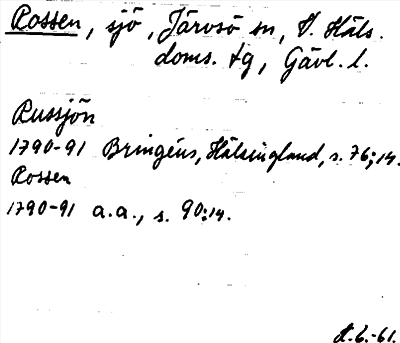 Rossen, sjö, Järvsö sn, V. Häls.
doms. tg, Gävl. l.
Russjön
1790-91 Bringéus, Hälsingland, s. 76; 14.
Rossen
1790-91 a.a., s. 90:14.